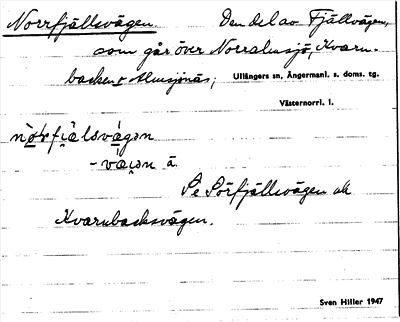 Norrfjällsvägen. Den del av Fjällvägen,
som går över Norralnsjö, Kvarn-
backen o Alnsjönäs; Ullångers sn, Ångermanl. s. doms. tg.
Västernorrl. l.
-vä̀i̯ən ä.
Se Sörfjällsvägen och
Kvarnbacksvägen.
Sven Hiller 1947